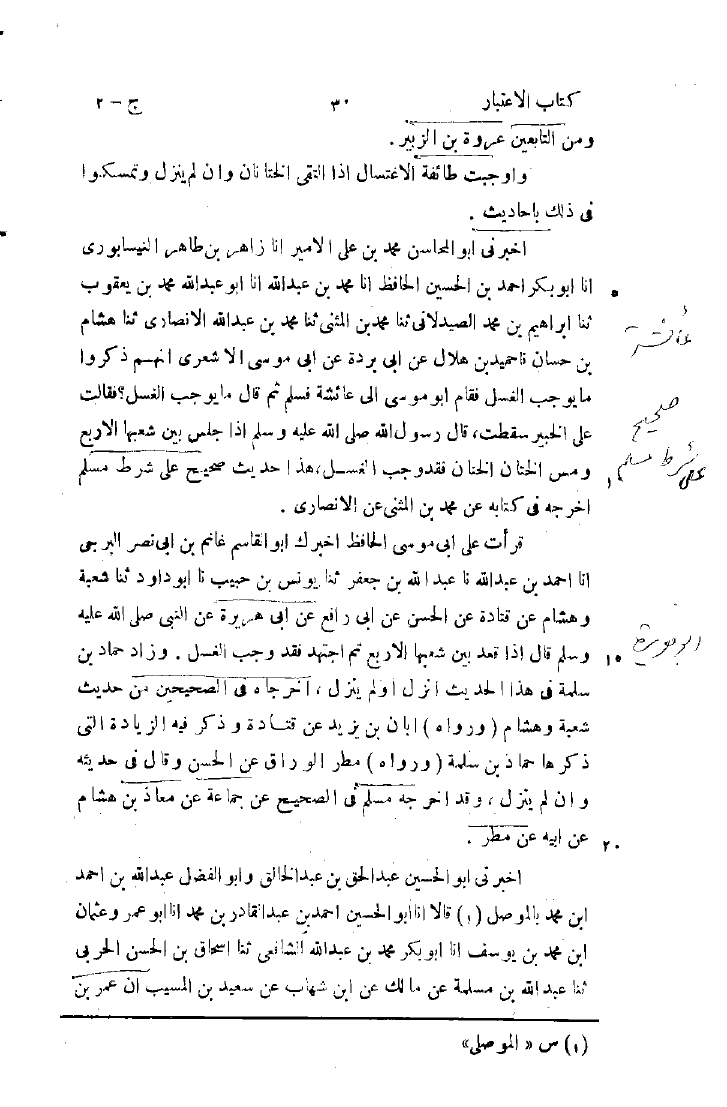 كتاب الاعتبار ٣٠ ج - ٢
ومن التابعين عروة بن الزبير .
واوجبت طائفة الاغتسال اذا التقى الختانان وان لم ينزل وتمسكوا
فى ذلك باحاديث .
اخبرنى ابو المحاسن محمد بن على الامير انا زاهر بن طاهر النيسابورى
انا ابو بكر احمد بن الحسين الحافظ انا محمد بن عبدالله انا ابو عبدالله محمد بن يعقوب
ثنا ابراهيم بن محمد الصيدلانى ثنا محمد بن المثنى ثنا محمد بن عبدالله الانصارى ثنا هشام
عائشة
بن حسان ناحميد بن هلال عن ابى بردة عن ابى موسى الاشعرى انهم ذكروا
مايوجب الغسل فقام ابو موسى الى عائشة فسلم ثم قال مايوجب الغسل؟ فقالت
على الخبير سقطت، قال رسول الله صلى الله عليه وسلم اذا جلس بين شعبها الاربع
صحيح
ومس الختان الختان فقد وجب الغسل، هذا حديث صحيح على شرط مسلم
على شرط مسلم
اخرجه فى كتابه عن محمد بن المثنى عن الانصارى .
قرأت على ابى موسى الحافظ اخبرك ابو القاسم غانم بن ابى نصر البرجى
انا احمد بن عبدالله نا عبد الله بن جعفر ثنا يونس بن حبيب نا ابو داود ثنا شعبة
وهشام عن قتادة عن الحسن عن ابى رافع عن ابى هريرة عن النبى صلى الله عليه
ابو هريرة
وسلم قال اذا قعد بين شعبها الاربع ثم اجتهد فقد وجب الغسل . وزاد حماد بن
١٥
سلمة فى هذا الحديث انزل اولم ينزل ، اخرجاه فى الصحيحين من حديث
شعبة وهشام (ورواه) ابان بن يزيد عن قتادة وذكر فيه الزيادة التى
ذكرها حماد بن سلمة (ورواه) مطر الوراق عن الحسن وقال فى حديثه
وان لم ينزل ، وقد اخرجه مسلم فى الصحيح عن جماعة عن معاذ بن هشام
عن ابيه عن مطر .
٢٠
اخبرنى ابو الحسين عبدالحق بن عبدالخالق وابو الفضل عبدالله بن احمد
ابن محمد بالموصل (١) قالا انا ابو الحسين احمد بن عبدالقادر بن محمد انا ابو عمرو عثمان
ابن محمد بن يوسف انا ابو بكر محمد بن عبدالله الشافعى ثنا اسحاق بن الحسن الحربى
ثنا عبد الله بن مسلمة عن مالك عن ابن شهاب عن سعيد بن المسيب ان عمر بن
(١) س « الموصلى»